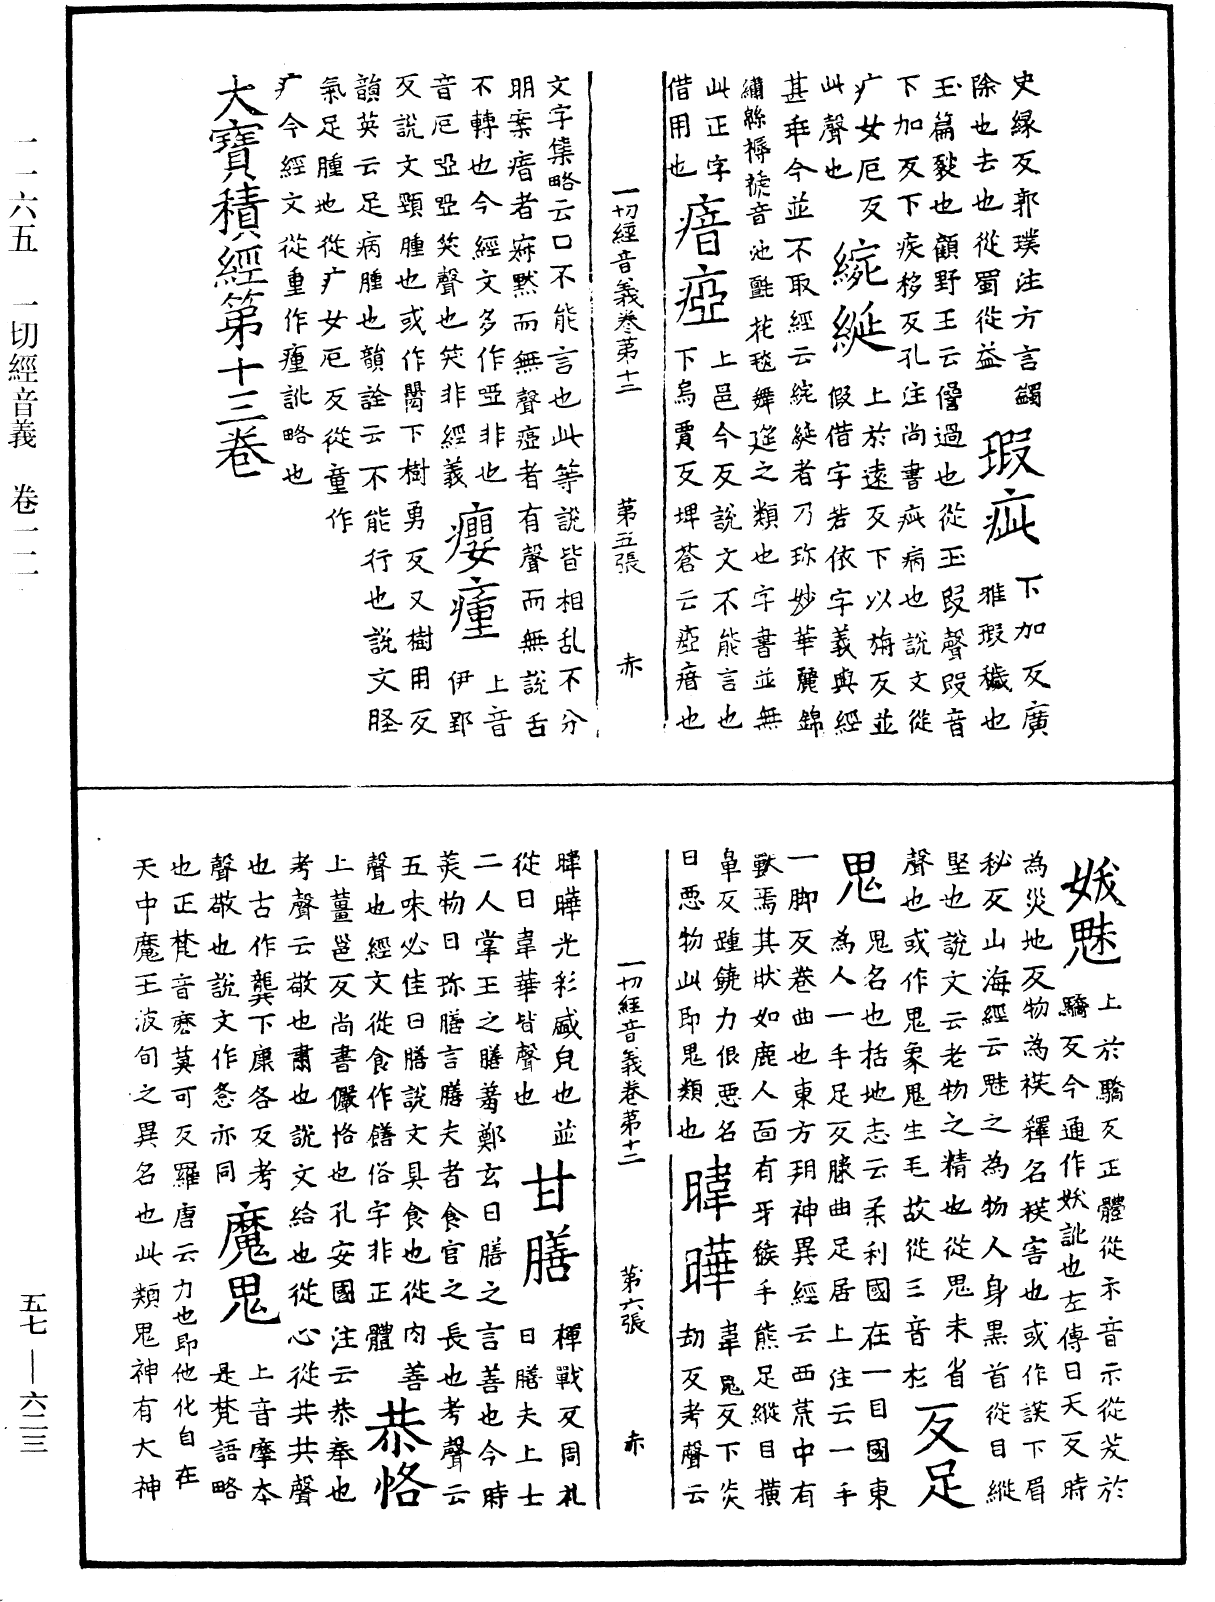 一一六五　一切經音義　卷一二
史緣反郭璞注方言蠲
除也去也從蜀從益　瑕疵　下加反廣雅瑕穢也
玉篇瑕也顧野王云僭過也從玉叚聲叚音
下加反下疾移反孔注尚書疵病也說文從
疒女厄反　綩綖　上於遠反下以旃反並
此聲也　假借字若依字義與經
甚乖今並不取經云綩綖者乃珍妙華麗錦
繡綿褥音池氈花毯舞筵之類也字書並無
此正字　瘖瘂　上邑今反說文不能言也
借用也　下烏賈反埤蒼云瘂瘖也
一切經音義卷第十二　第五張　赤
文字集略云口不能言也此等說皆相亂不分
明案瘖者寂默而無聲瘂者有聲而無說舌
不轉也今經文多作啞非也
音厄啞啞笑聲也笑非經義　癭瘇　上音伊郢
反說文頸腫也或作𦞅下樹勇反又樹用反
韻英云足病腫也韻詮云不能行也說文脛
氣足腫也從疒女厄反從童作
疒今經文從重作㾮訛略也
大寶積經第十三卷
妖魅　上於驕反正體從示音示從芺於
驕反今通作妖訛也左傳曰天反時
為災地反物為祅釋名祅害也或作訞下眉
秘反山海經云魅之為物人身黑首從目縱
堅也說文云老物之精也從鬼未省
聲也或作鬼象鬼生毛故從三音杉　反足
鬼　鬼名也括地志云柔利國在一目國東
為人一手足反膝曲足居上注云一手
一腳反卷曲也東方朔神異經云西荒中有
獸焉其狀如鹿人面有牙猴手熊足縱目橫
鼻反踵饒力佷惡名
曰惡物此即鬼類也　暐曄　韋鬼反下炎劫反考聲云
一切經音義卷第十二　第六張　赤
暐曄光彩盛皃也並
從日韋華皆聲也　甘膳　禪戰反周禮曰膳夫上士
二人掌王之膳羞鄭玄曰膳之言善也今時
美物曰珍膳言膳夫者食官之長也考聲云
五味必佳曰膳說文具食也從肉善
聲也經文從食作饍俗字非正體　恭恪
上薑邕反尚書儼恪也孔安國注云恭奉也
考聲云敬也肅也說文給也從心從共共聲
也古作龔下康各反考
聲敬也說文作愙亦同　魔鬼　上音摩本是梵語略
也正梵音麽莫可反羅唐云力也即他化自在
天中魔王波旬之異名也此類鬼神有大神
五七—六二三